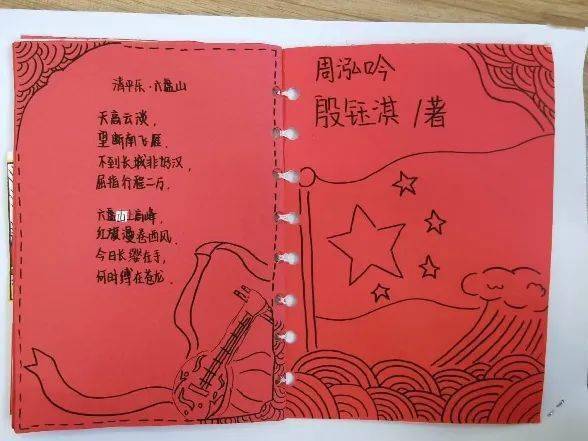 清平乐·六盘山
天高云淡,
望断南飞雁.
不到长城非好汉,
屈指行程二万,
六盘山上高峰,
红旗漫卷西风.
今日长缨在手,
何时缚在苍龙.
周泓吟
殷钰淇 /著